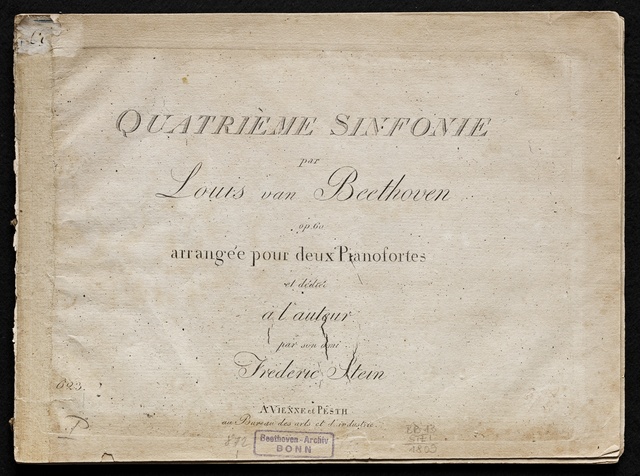 QUATRIÈME SINFONIE
par
Louis van Beethoven
op. 60
arrangée pour deux Pianofortes
et dédiée
à l'auteur
par son ami
Fréderic Stein
A VIENNE et PESTH
au Bureau des arts et d'industrie.
623.
P
Beethoven-Archiv
BONN